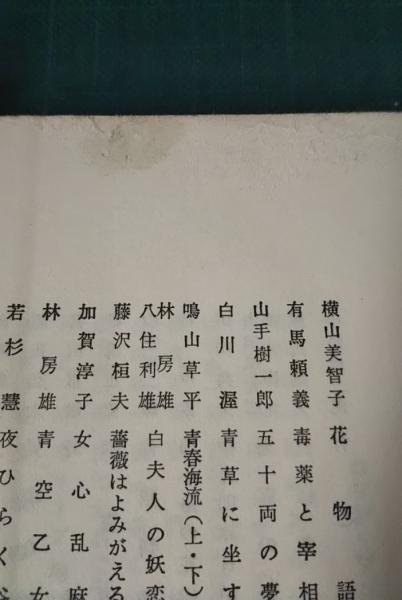 横山美智子 花物語
有馬頼義 毒薬と宰相
山手樹一郎 五十両の夢
白川渥 青草に坐す
鳴山草平 青春海流(上・下)
林房雄
八住利雄 白夫人の妖恋
藤沢桓夫 薔薇はよみがえる
加賀淳子 女心乱麻
林房雄 青空乙女
若杉慧 夜ひらく